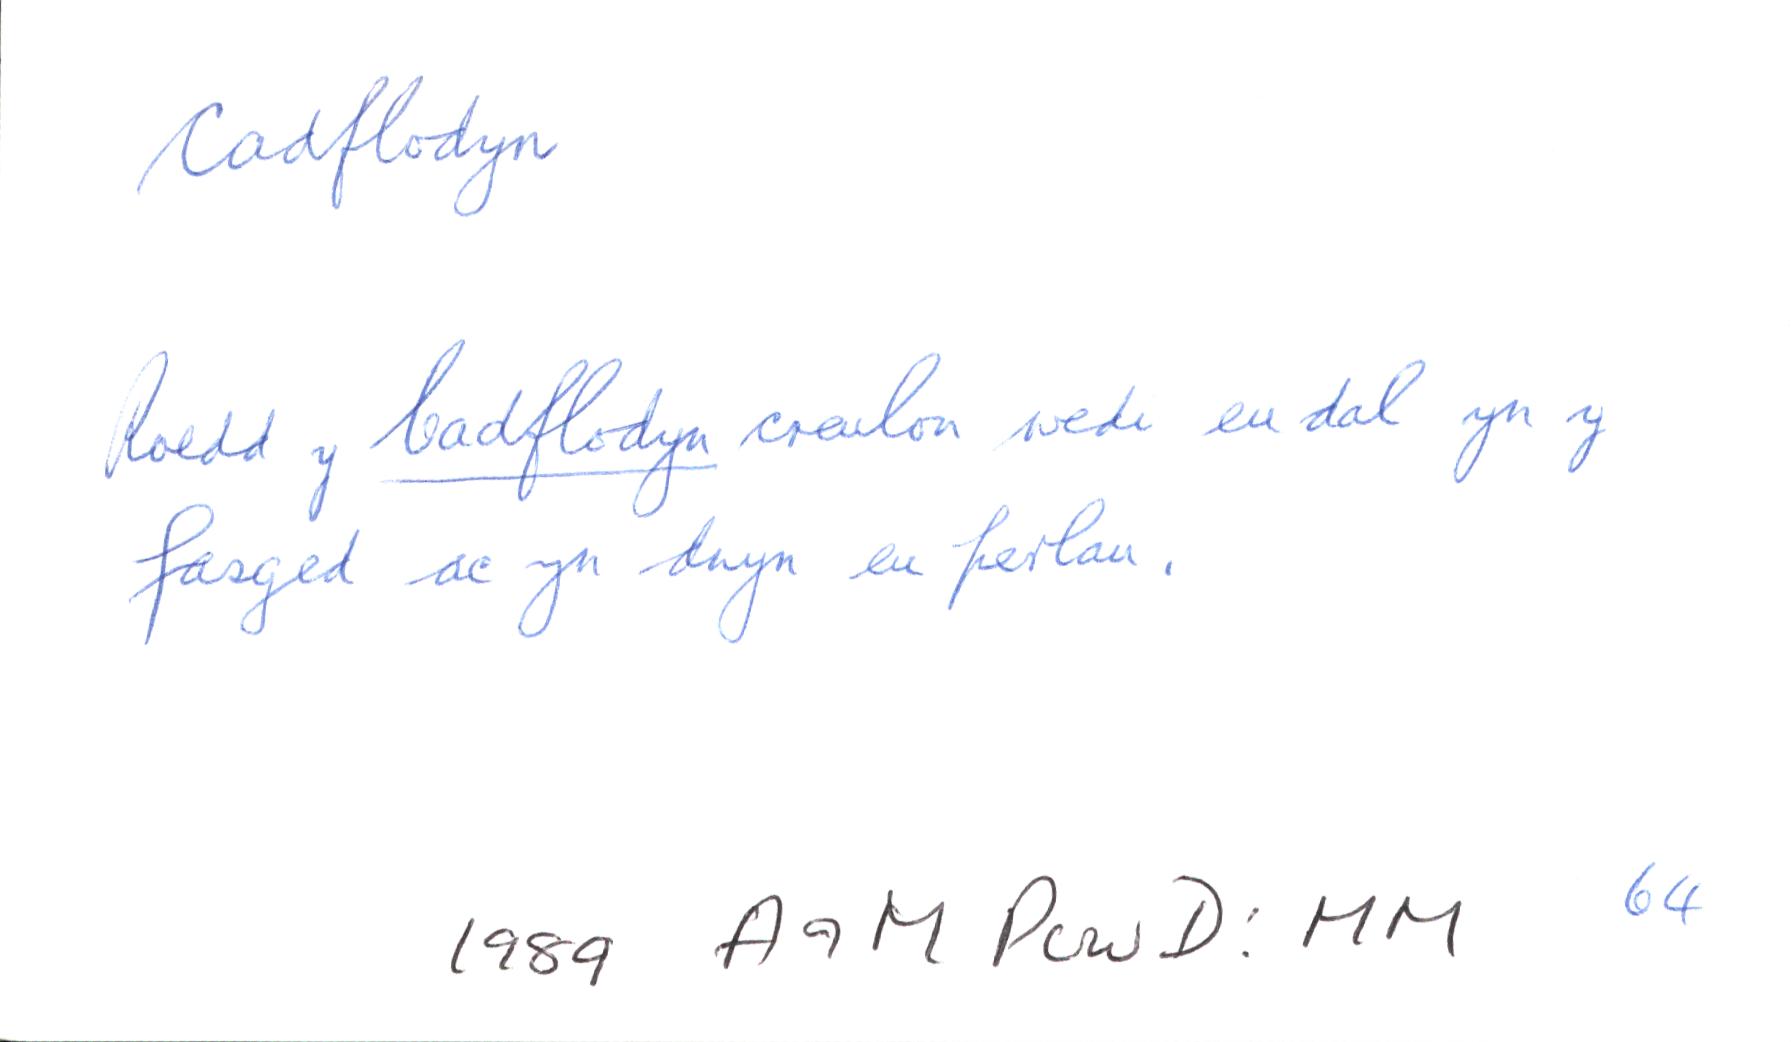 Cadflodyn
Roedd y Cadflodyn creulon wedi eu dal yn y
fasged ac yn dwyn eu perlau.
64
1989 A9M PcwD: MM